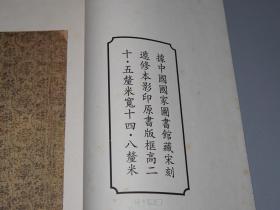 據中國國家圖書館藏宋刻
遞修本影印原書版框高二
十·五釐米寬十四·八釐米